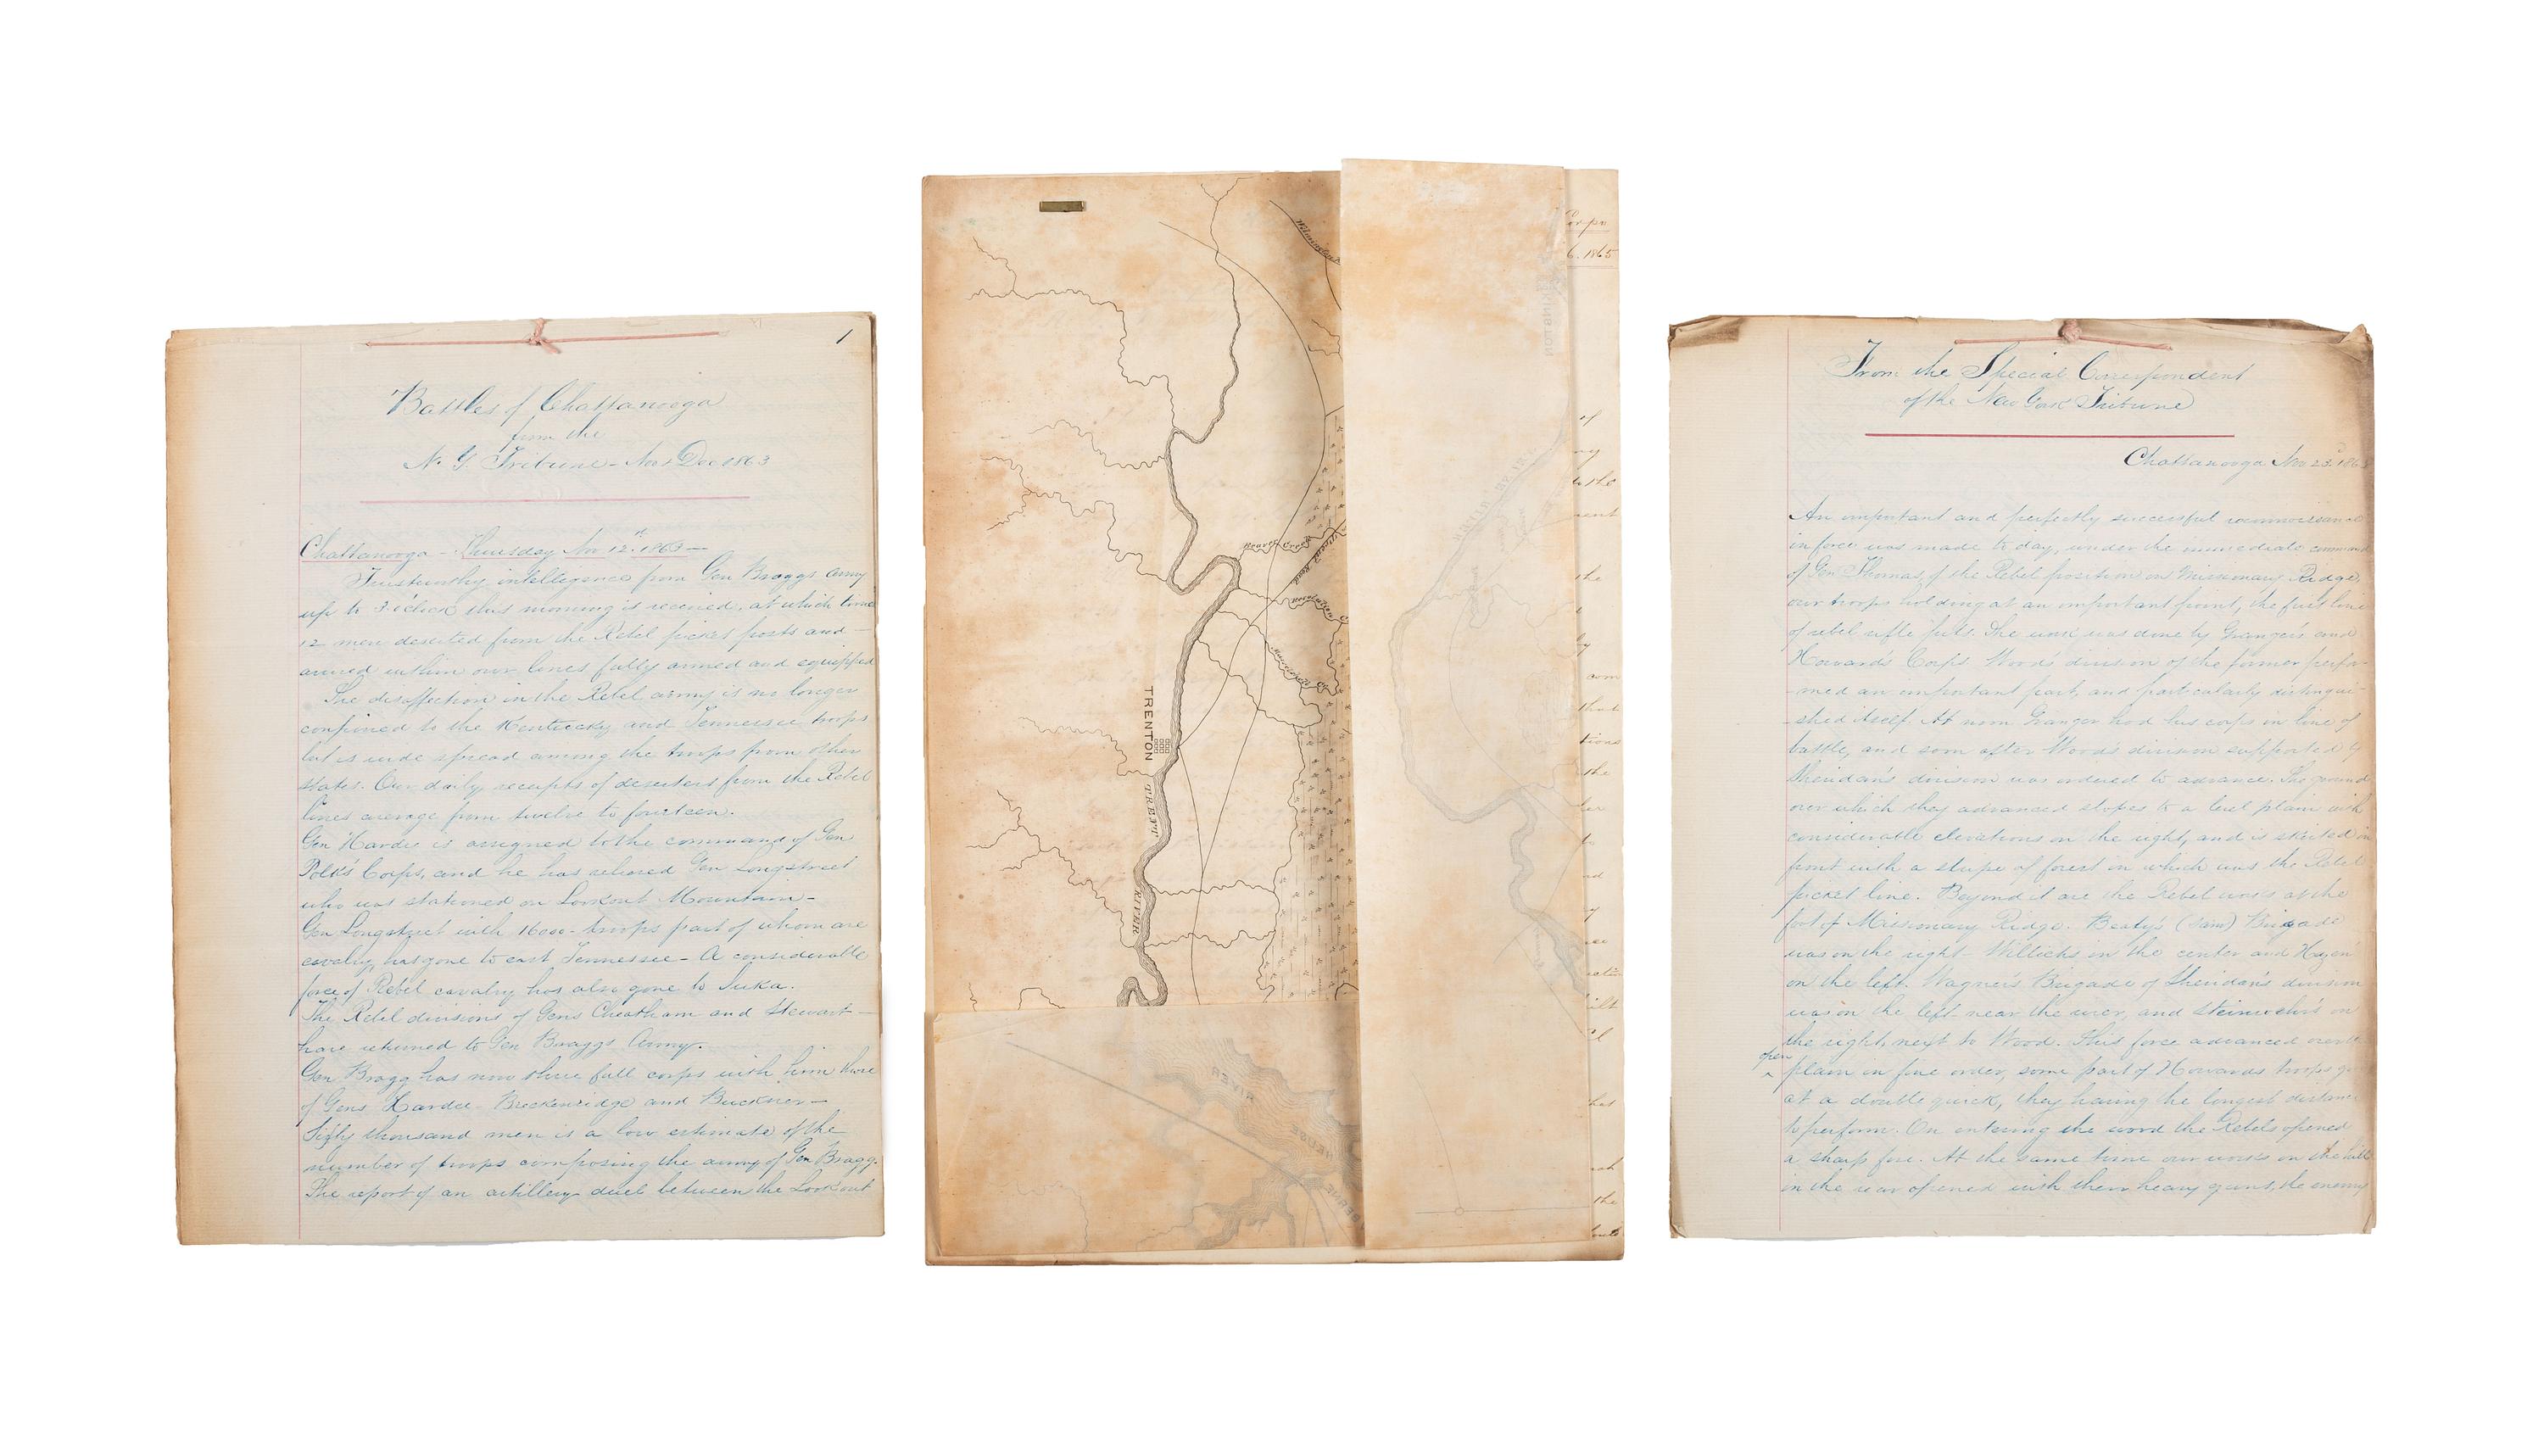 1
Battles of Chattanooga
from the
N. Y. Tribune - Nov & Dec 1863
Chattanooga - Thursday Nov 12th 1863 -
Trustworthy intelligence from Gen Braggs army
up to 3 o'clock this morning is received, at which time
12 men deserted from the Rebel picket posts and -
arrived within our lines fully armed and equipped
The disaffection in the Rebel army is no longer
confined to the Kentucky and Tennessee troops
but is wide spread among the troops from other
states. Our daily receipts of deserters from the Rebel
lines average from twelve to fourteen.
Gen Hardee is assigned to the command of Gen
Polk's Corps, and he has relieved Gen Longstreet
who was stationed on Lookout Mountain -
Gen Longstreet with 16000 - troops part of whom are
cavalry, has gone to east Tennessee - A considerable
force of Rebel cavalry has also gone to Iuka.
The Rebel divisions of Gens Cheatham and Stewart -
have returned to Gen Braggs Army.
Gen Bragg has now three full corps with him those
of Gens Hardee Breckenridge and Buckner -
Fifty thousand men is a low estimate of the
number of troops composing the army of Gen Bragg.
The report of an artillery duel between the Lookout
TRENTON
TRENT
RIVER
Beaver Creek
Road
NEUSE
RIVER
KINSTON
6. 1865
of
the
ment
the
by
that
tions
the
the
From the Special Correspondent
of the New York Tribune
Chattanooga Nov 23d 186
An important and perfectly successful reconnoissance
in force was made to day, under the immediate command
of Gen Thomas, of the Rebel position on Missionary Ridge,
our troops holding at an important point, the first line
of rebel rifle pits. The work was done by Granger's and
Howard's Corps. Wood's division of the former perfor-
-med an important part, and particularly distingui-
-shed itself. At noon Granger had his corps in line of
battle, and soon after Wood's division supported by
Sheridan's division was ordered to advance. The ground
over which they advanced slopes to a level plain with
considerable elevations on the right, and is skirted in
front with a stripe of forest in which was the Rebel
picket line. Beyond it are the Rebel works at the
foot of Missionary Ridge. Beaty's (Sam) Brigade
was on the right - Willich's in the center and Hazen's
on the left. Wagner's Brigade of Sheridan's division
was on the left near the river, and Steinwehr's on
the right, next to Wood. This force advanced over the
open
plain in fine order, some part of Howards troops go
at a double quick, they having the longest distance
to perform. On entering the wood the Rebels opened
a sharp fire. At the same time our works on the hill
in the rear opened with their heavy guns, the enemy